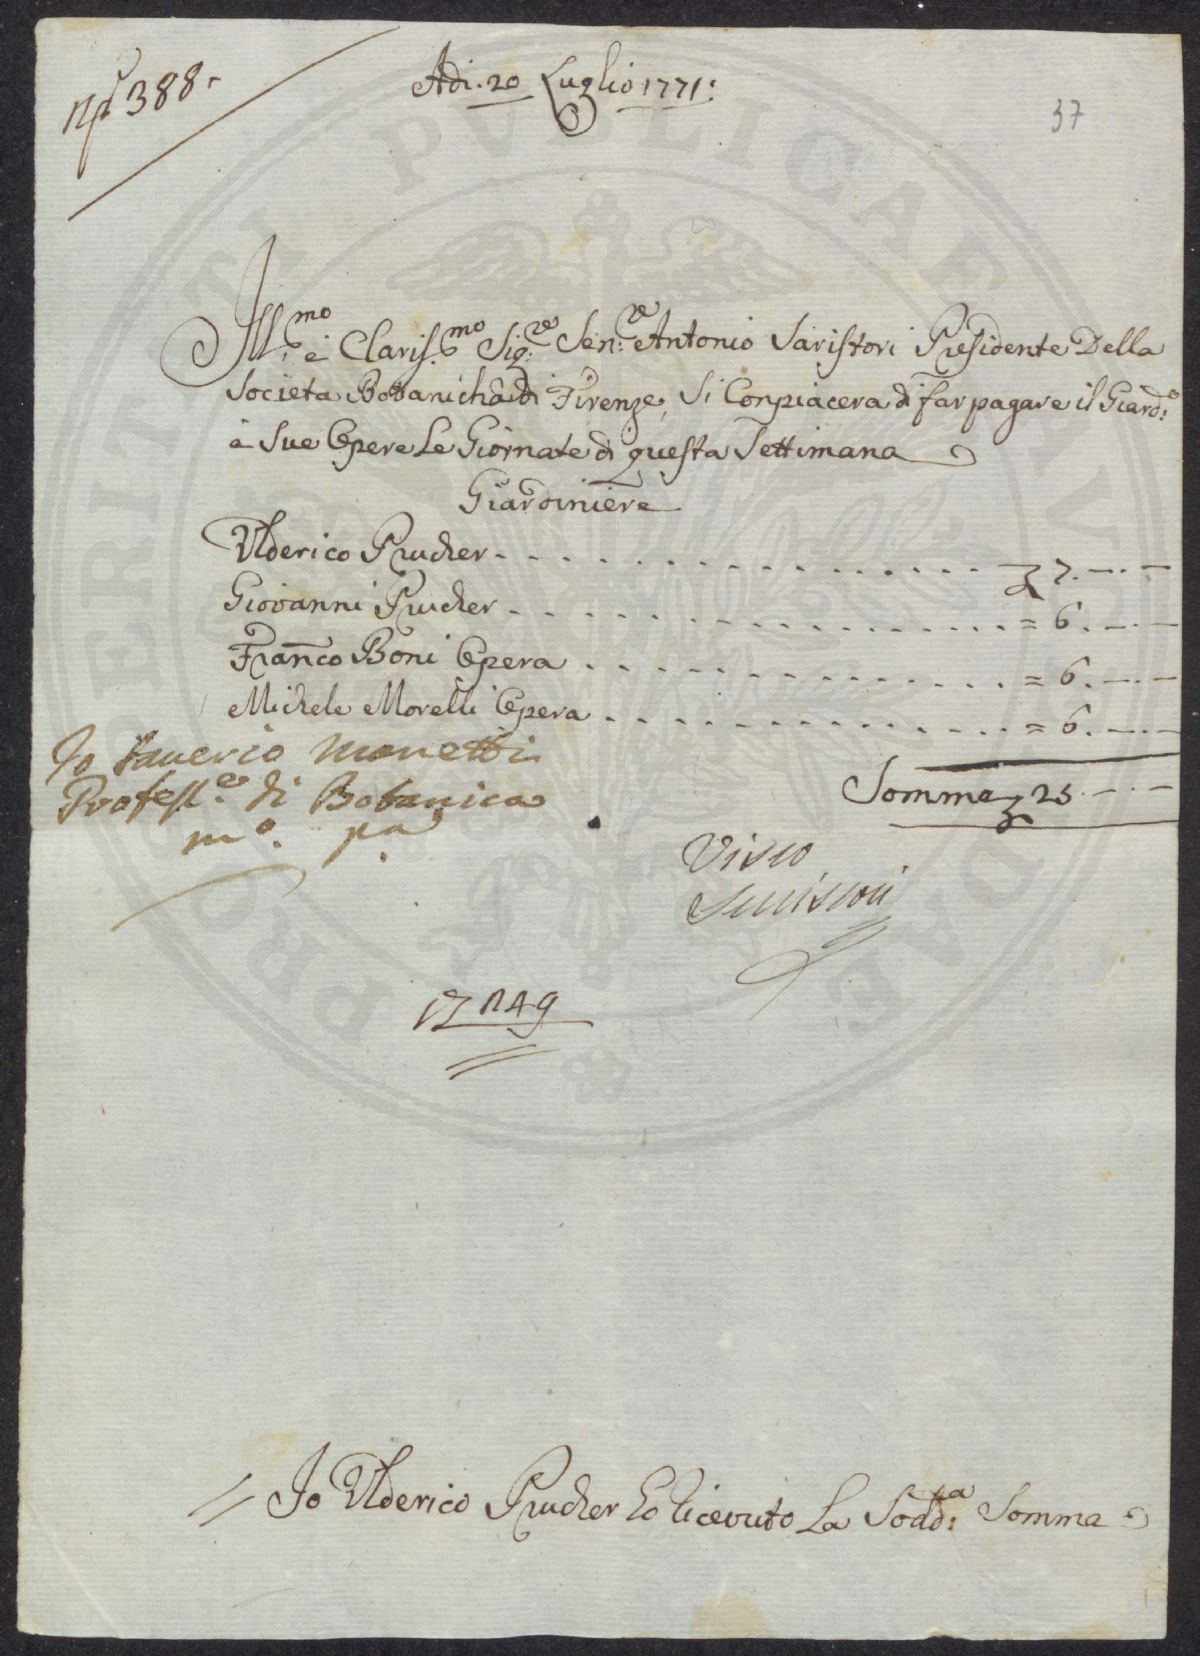 N.º 388.
Adi. 20 Luglio 1771:
37
Ill.mo e Clariss.mo Sig.re Sen.re Antonio Saristori Presidente Della
Societa Botanicha di Firenze, Si Conpiacera di far pagare il Giard.e
e Sue Opere Le Giornate di questa Settimana
Giardiniere
Ulderico Prucher - - - 7. — . —
Giovanni Prucher - - - = 6. — . —
Fran.co Boni Opera - - - = 6. — . —
Michele Morelli Opera - - - = 6. — . —
Io Saverio Manetti
Profess.e di Botanica
m.o p.a
Somma 25. — . —
Visto
PROPRIETATI PVBLICAE
= Io Ulderico Prucher ho ricevuto La Sodd.a Somma